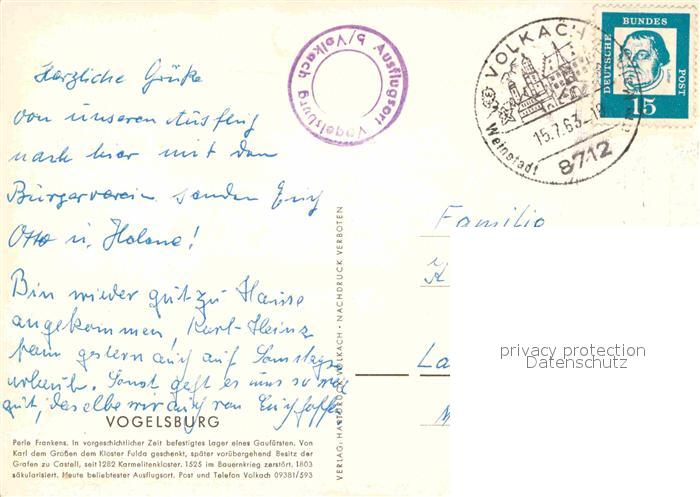 Herzliche Grüße
von unseren Ausflug
nach hier mit dem
Bürgerverein senden Euch
Otto u. Helene!
Bin wieder gut zu Hause
angekommen, Karl-Heinz
kam gestern auch auf Samstags
urlaub. Sonst geht es uns so weit
gut, dasselbe wir auch von Euch hoffen
VOGELSBURG
Perle Frankens. In vorgeschichtlicher Zeit befestigtes Lager eines Gaufürsten. Von
Karl dem Großen dem Kloster Fulda geschenkt, später vorübergehend Besitz der
Grafen zu Castell, seit 1282 Karmelitenkloster. 1525 im Bauernkrieg zerstört. 1803
säkularisiert. Heute beliebtester Ausflugsort. Post und Telefon Volkach 09381/593
Ausflugsort Vogelsburg
P/Volkach
VERLAG: VOLKACH · NACHDRUCK VERBOTEN
VOLKACH
15.7.63
Weinstadt
8712
DEUTSCHE
BUNDES
POST
15
Familie
K
La
privacy protection
Datenschutz